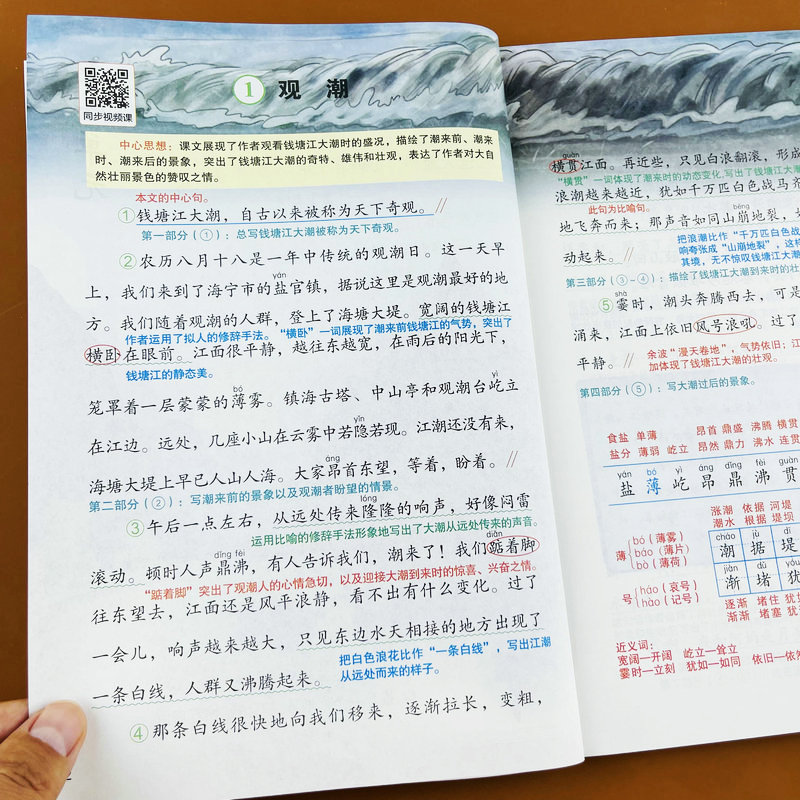 同步视频课
1 观 潮
中心思想：课文展现了作者观看钱塘江大潮时的盛况，描绘了潮来前、潮来
时、潮来后的景象，突出了钱塘江大潮的奇特、雄伟和壮观，表达了作者对大自
然壮丽景色的赞叹之情。
本文的中心句。
①钱塘江大潮，自古以来被称为天下奇观。//
第一部分（①）：总写钱塘江大潮被称为天下奇观。
②农历八月十八是一年中传统的观潮日。这一天早
yán
上，我们来到了海宁市的盐官镇，据说这里是观潮最好的地
方。我们随着观潮的人群，登上了海塘大堤。宽阔的钱塘江
作者运用了拟人的修辞手法。“横卧”一词展现了潮来前钱塘江的气势，突出了
横卧在眼前。江面很平静，越往东越宽，在雨后的阳光下，
钱塘江的静态美。
bó yì
笼罩着一层蒙蒙的薄雾。镇海古塔、中山亭和观潮台屹立
yǐn
在江边。远处，几座小山在云雾中若隐若现。江潮还没有来，
áng
海塘大堤上早已人山人海。大家昂首东望，等着，盼着。//
第二部分（②）：写潮来前的景象以及观潮者盼望的情景。
lóng
③午后一点左右，从远处传来隆隆的响声，好像闷雷
运用比喻的修辞手法形象地写出了大潮从远处传来的声音。
dǐng fèi diǎn
滚动。顿时人声鼎沸，有人告诉我们，潮来了！我们踮着脚
“踮着脚”突出了观潮人的心情急切，以及迎接大潮到来时的惊喜、兴奋之情。
往东望去，江面还是风平浪静，看不出有什么变化。过了
一会儿，响声越来越大，只见东边水天相接的地方出现了
把白色浪花比作“一条白线”，写出江潮
一条白线，人群又沸腾起来。
从远处而来的样子。
④那条白线很快地向我们移来，逐渐拉长，变粗，
guàn
横贯江面。再近些，只见白浪翻滚，形成
“横贯”一词体现了潮来时的动态变化，写出了钱塘江大潮
浪潮越来越近，犹如千万匹白色战马齐
此句为比喻句。
bēng
地飞奔而来；那声音如同山崩地裂，
把浪潮比作“千万匹白色战
动起来。//
响夸张成“山崩地裂”，这样
其境，无不惊叹钱塘江大潮
第三部分（③－④）：描绘了钱塘江大潮到来时的壮
shà
⑤霎时，潮头奔腾西去，可是
涌来，江面上依旧风号浪吼。过了
平静。//
余波“漫天卷地”，气势依旧；江
加体现了钱塘江大潮的壮观。
第四部分（⑤）：写大潮过后的景象。
食盐 单薄 昂首 鼎盛 沸腾 横贯
盐分 薄弱 屹立 昂然 鼎力 沸水 连贯
yán bó yì áng dǐng fèi guàn
盐 薄 屹 昂 鼎 沸 贯
涨潮 依据 河堤
潮水 根据 堤坝
薄 bó（薄雾） báo（薄片） bò（薄荷）
cháo jù dī
潮 据 堤
jiàn dǔ yóu
渐 堵 犹
号 háo（哀号） hào（记号）
逐渐 堵住 犹
渐渐 堵塞 犹
近义词：
宽阔—开阔 屹立—耸立
霎时—立刻 犹如—如同 依旧—依然